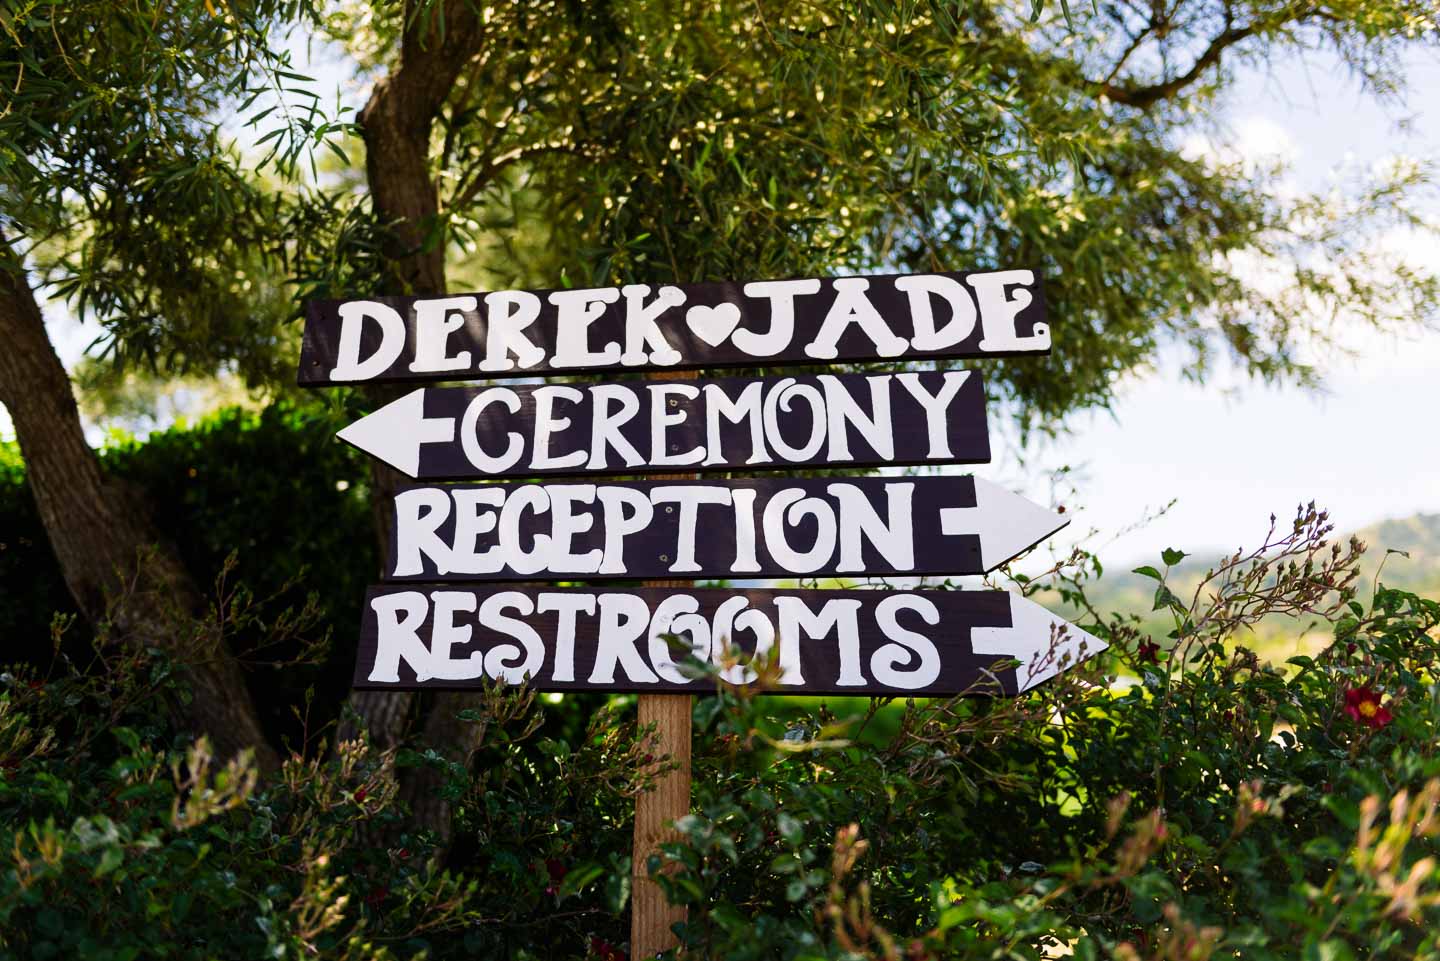 DEREK♥JADE
CEREMONY
RECEPTION
RESTROOMS